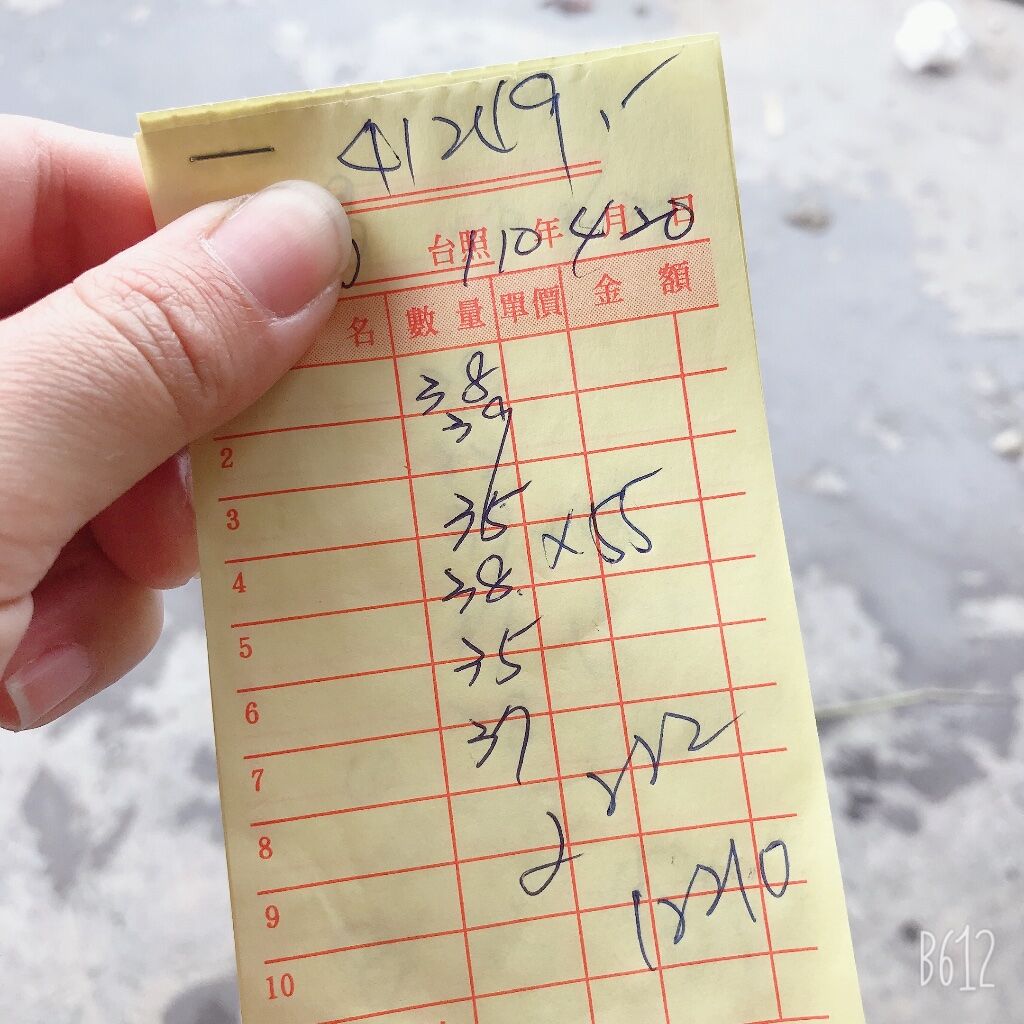 41249,-
台照 110年4月20日
名 數量 單價 金額
38
2 39
3 35 ×55
4 38
5 35
6 37 222
7
8 2
9 12210
10
B612